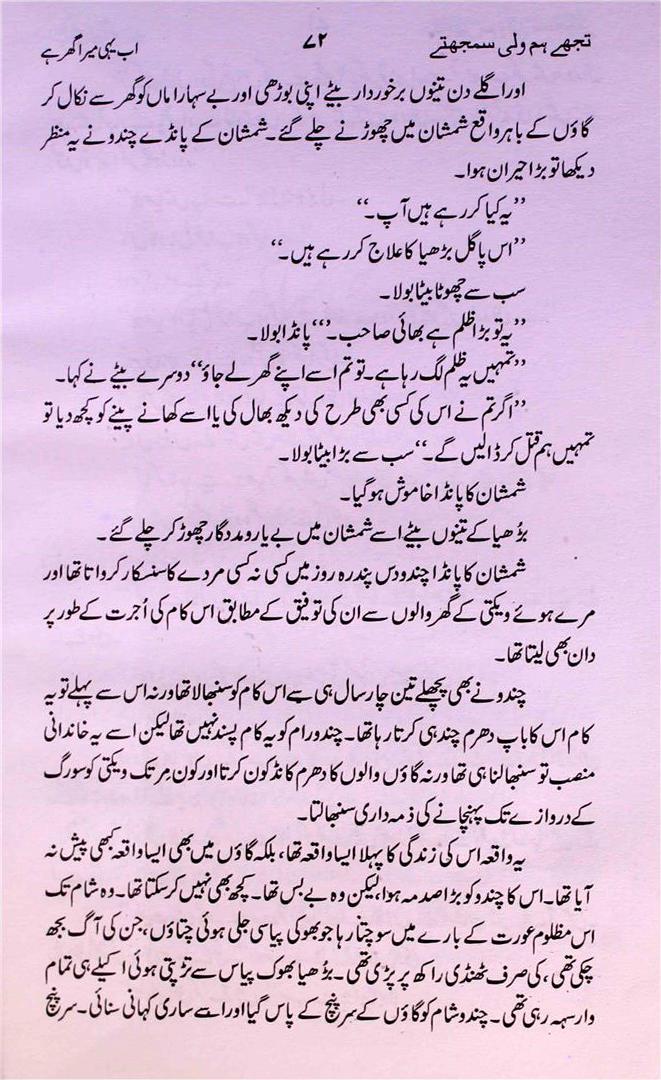 تجھے ہم ولی سمجھتے ۷۲ اب یہی میرا گھر ہے
اور اگلے دن تینوں برخوردار بیٹے اپنی بوڑھی اور بے سہارا ماں کو گھر سے نکال کر
گاؤں کے باہر واقع شمشان میں چھوڑنے چلے گئے۔ شمشان کے پانڈے چندو نے یہ منظر
دیکھا تو بڑا حیران ہوا۔
’’یہ کیا کر رہے ہیں آپ۔‘‘
’’اس پاگل بڑھیا کا علاج کر رہے ہیں۔‘‘
سب سے چھوٹا بیٹا بولا۔
’’یہ تو بڑا ظلم ہے بھائی صاحب۔‘‘’ پانڈا بولا۔
’’تمہیں یہ ظلم لگ رہا ہے۔ تو تم اسے اپنے گھر لے جاؤ‘‘ دوسرے بیٹے نے کہا۔
’’اگر تم نے اس کی کسی بھی طرح کی دیکھ بھال کی یا اسے کھانے پینے کو کچھ دیا تو
تمہیں ہم قتل کر ڈالیں گے۔‘‘ سب سے بڑا بیٹا بولا۔
شمشان کا پانڈا خاموش ہو گیا۔
بڑھیا کے تینوں بیٹے اسے شمشان میں بے یار و مددگار چھوڑ کر چلے گئے۔
شمشان کا پانڈا چندو دس پندرہ روز میں کسی نہ کسی مردے کا سنسکار کرواتا تھا اور
مرے ہوئے ویکتی کے گھر والوں سے ان کی توفیق کے مطابق اس کام کی اُجرت کے طور پر
دان بھی لیتا تھا۔
چندو نے بھی پچھلے تین چار سال ہی سے اس کام کو سنبھالا تھا ورنہ اس سے پہلے تو یہ
کام اس کا باپ دھرم چند ہی کرتا رہا تھا۔ چندو رام کو یہ کام پسند نہیں تھا لیکن اسے یہ خاندانی
منصب تو سنبھالنا ہی تھا ورنہ گاؤں والوں کا دھرم کانڈ کون کرتا اور کون مرتک ویکتی کو سورگ
کے دروازے تک پہنچانے کی ذمہ داری سنبھالتا۔
یہ واقعہ اس کی زندگی کا پہلا ایسا واقعہ تھا، بلکہ گاؤں میں بھی ایسا واقعہ کبھی پیش نہ
آیا تھا۔ اس کا چندو کو بڑا صدمہ ہوا، لیکن وہ بے بس تھا۔ کچھ بھی نہیں کر سکتا تھا۔ وہ شام تک
اس مظلوم عورت کے بارے میں سوچتا رہا جو بھوکی پیاسی جلی ہوئی چتاؤں، جن کی آگ بجھ
چکی تھی، کی صرف ٹھنڈی راکھ پر پڑی تھی۔ بڑھیا بھوک پیاس سے تڑپتی ہوئی اکیلے ہی تمام
وار سہہ رہی تھی۔ چندو شام کو گاؤں کے سرپنچ کے پاس گیا اور اسے ساری کہانی سنائی۔ سرپنچ